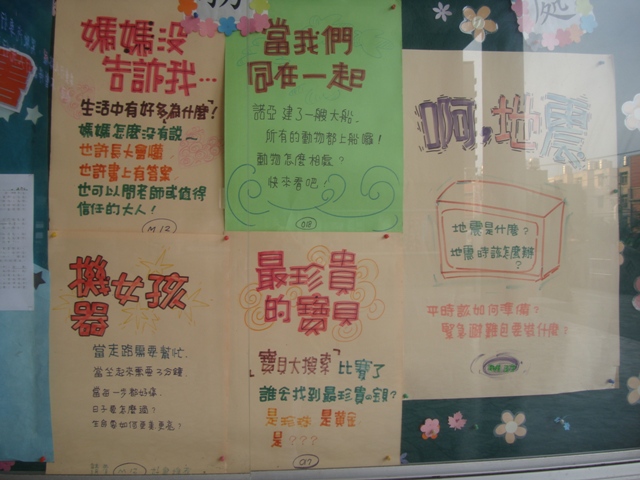 媽媽没
告訴我…
生活中有好多為什麼"!
媽媽怎麼沒有說~
也許長大會懂
也許書上有答案
也可以問老師或值得
信任的大人!
M12
當我們
同在一起
諾亞建了一艘大船.
所有的動物都上船囉!
動物怎麼相歡?
快來看吧!
啊,地震
地震是什麼?
地震時該怎麼辦
?
平時該如何準備?
緊急避難自要做什麼?
機女孩
器
當走路需要幫忙.
當站起來需要三分鐘.
當每一步都好痛.
日子要怎麼過?
最珍貴
的寶貝
「寶貝大搜索」比賽了
誰會找到最珍貴の寶貝?
是珍珠 是黃金
是???